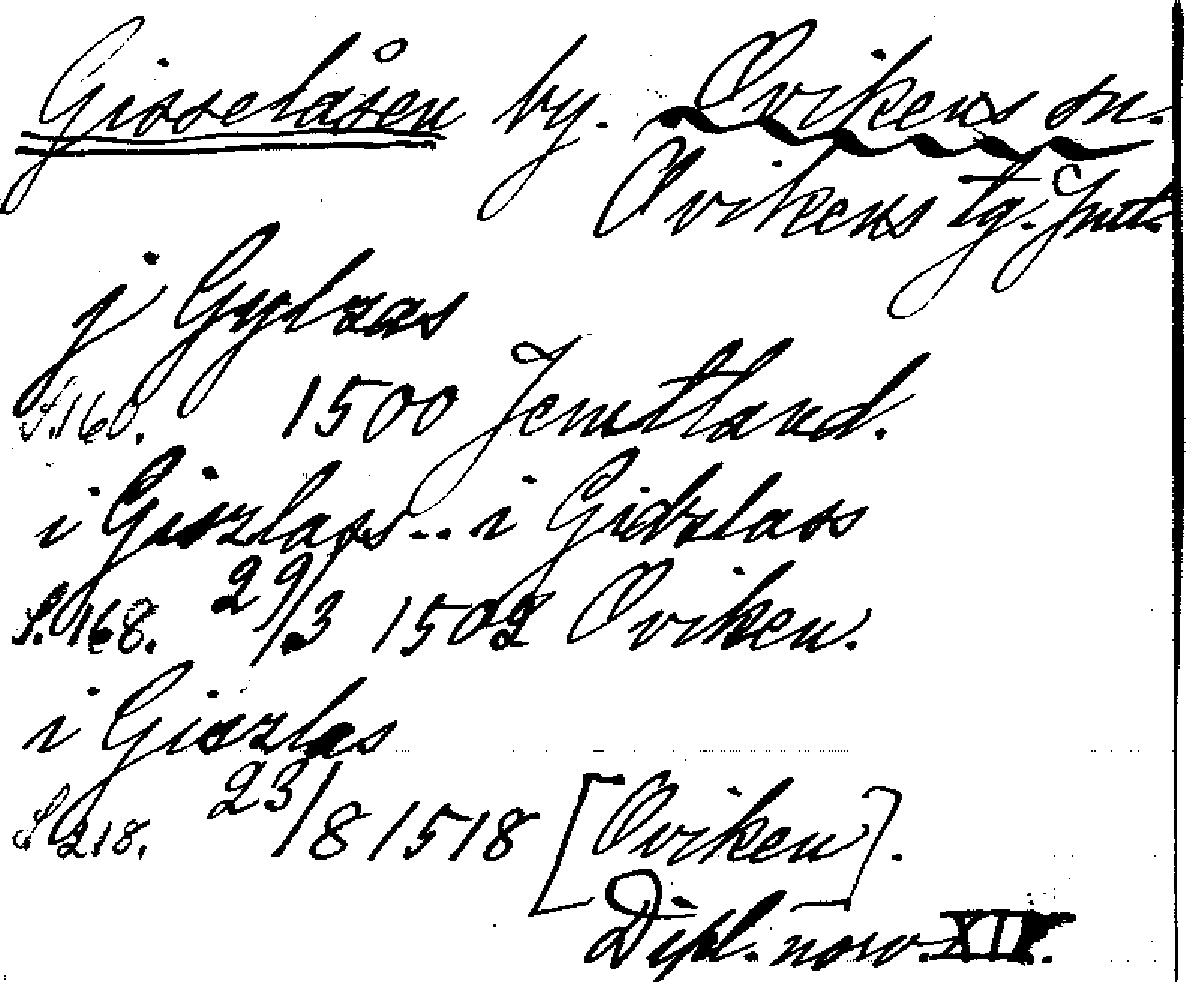 Gisselåsen by. Ovikens sn.
Ovikens tg. Jmtl.
j Gylzas
S. 160. 1500 Jemtland.
i Giszlaas... i Gidzlaas
S. 168. 29/3 1502 Oviken.
i Giszlas
S. 218. 23/8 1518 [Oviken].
Dipl. norv.